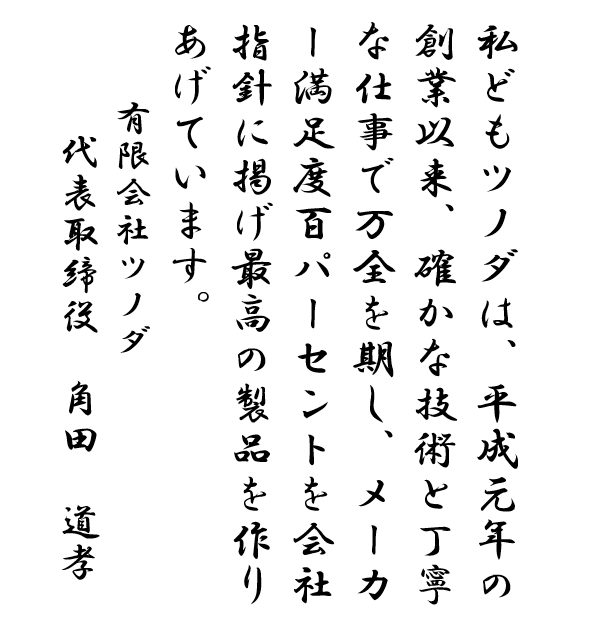 私どもツノダは、平成元年の
創業以来、確かな技術と丁寧
な仕事で万全を期し、メーカ
ー満足度百パーセントを会社
指針に掲げ最高の製品を作り
あげています。
有限会社ツノダ
代表取締役　角田　道孝